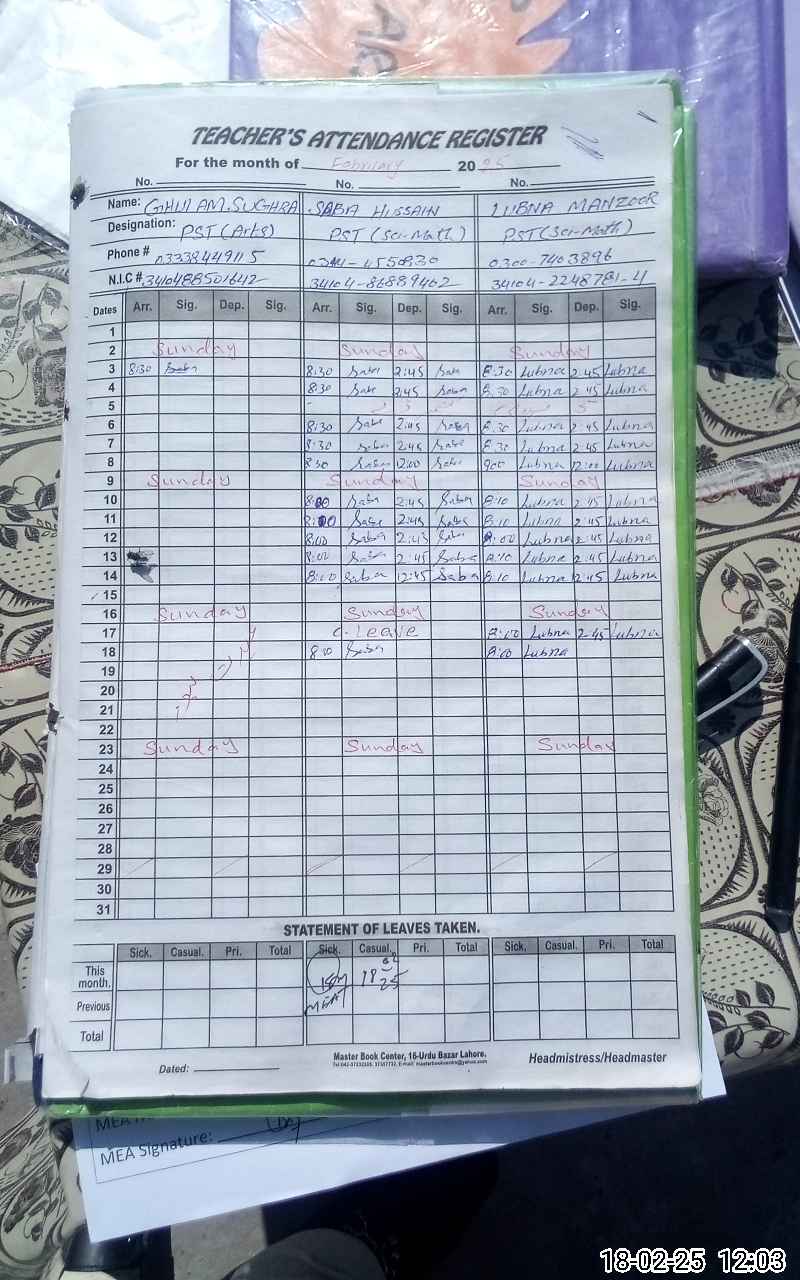 TEACHER'S ATTENDANCE REGISTER
For the month of February 2025
No. No. No.
Name: GHULAM.SUGHRA SABA HUSSAIN LUBNA MANZOOR
Designation: PST (Arts) PST (Sci-Math) PST (Sci-Math)
Phone # 03338449115 0300-7403896
N.I.C # 34104-86889462 34104-2248781-4
Dates Arr. Sig. Dep. Sig. Arr. Sig. Dep. Sig. Arr. Sig. Dep. Sig.
1
2 Sunday Sunday Sunday
3 8:30 Saba 8:30 Saba 2:45 Saba 8:30 Lubna 2:45 Lubna
4 8:30 Saba 2:45 Saba 8:30 Lubna 2:45 Lubna
5
6 8:30 Saba 2:45 Saba 8:30 Lubna 2:45 Lubna
7 8:30 Saba 2:45 Saba 8:30 Lubna 2:45 Lubna
8 8:30 Saba 12:00 Saba 9:00 Lubna 12:00 Lubna
9 Sunday Sunday Sunday
10 8:00 Saba 2:45 Saba 8:10 Lubna 2:45 Lubna
11 8:00 Saba 2:45 Saba 8:10 Lubna 2:45 Lubna
12 8:00 Saba 2:45 Saba 8:00 Lubna 2:45 Lubna
13 8:00 Saba 2:45 Saba 8:10 Lubna 2:45 Lubna
14 8:00 Saba 12:45 Saba 8:10 Lubna 2:45 Lubna
15
16 Sunday Sunday Sunday
17 C. Leave 8:00 Lubna 2:45 Lubna
18 8:00 Saba 8:00 Lubna
19
20
21
22
23 Sunday Sunday Sunday
24
25
26
27
28
29
30
31
STATEMENT OF LEAVES TAKEN.
Sick. Casual. Pri. Total Sick. Casual. Pri. Total Sick. Casual. Pri. Total
This month. 18 02 25
MEA
Previous
Total
Dated:
Master Book Center, 16-Urdu Bazar Lahore.
Headmistress/Headmaster
MEA Signature:
18-02-25 12:03